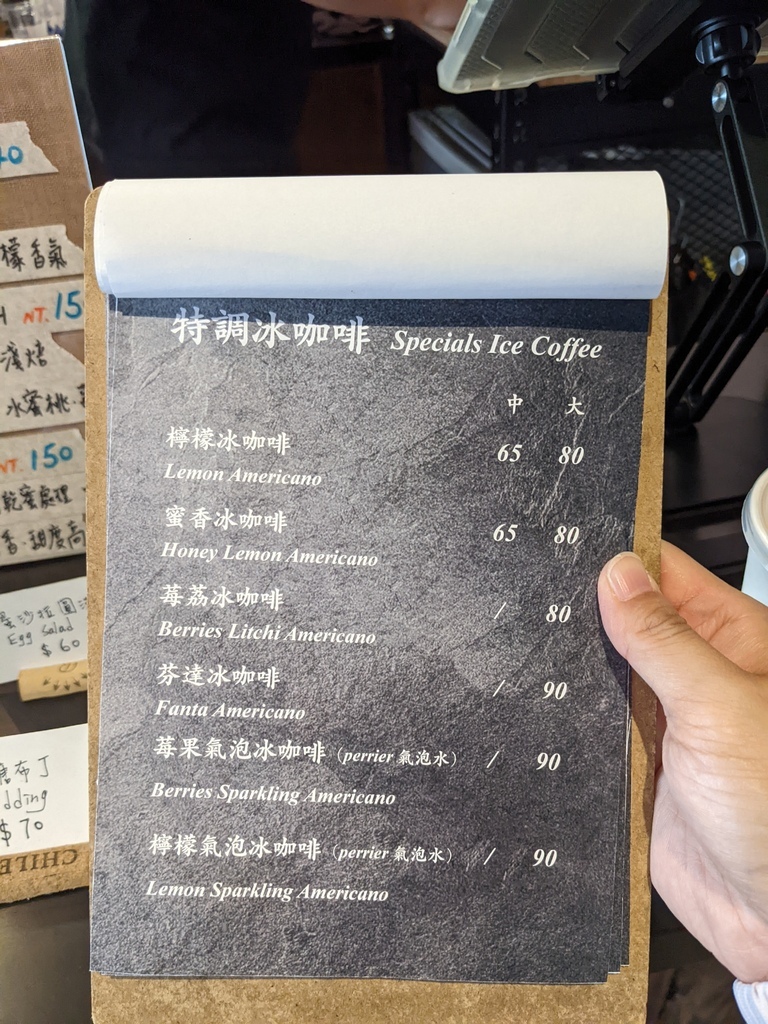 特調冰咖啡 Specials Ice Coffee
中 大
檸檬冰咖啡 65 80
Lemon Americano
蜜香冰咖啡 65 80
Honey Lemon Americano
莓荔冰咖啡 / 80
Berries Litchi Americano
芬達冰咖啡 / 90
Fanta Americano
莓果氣泡冰咖啡 (perrier 氣泡水) / 90
Berries Sparkling Americano
檸檬氣泡冰咖啡 (perrier 氣泡水) / 90
Lemon Sparkling Americano
檬香氣
NT. 15
淺焙
水蜜桃
NT. 150
乾蜜處理
香·甜度高
蛋沙拉
Egg Salad
$ 60
布丁
dding
$ 70
CHILE